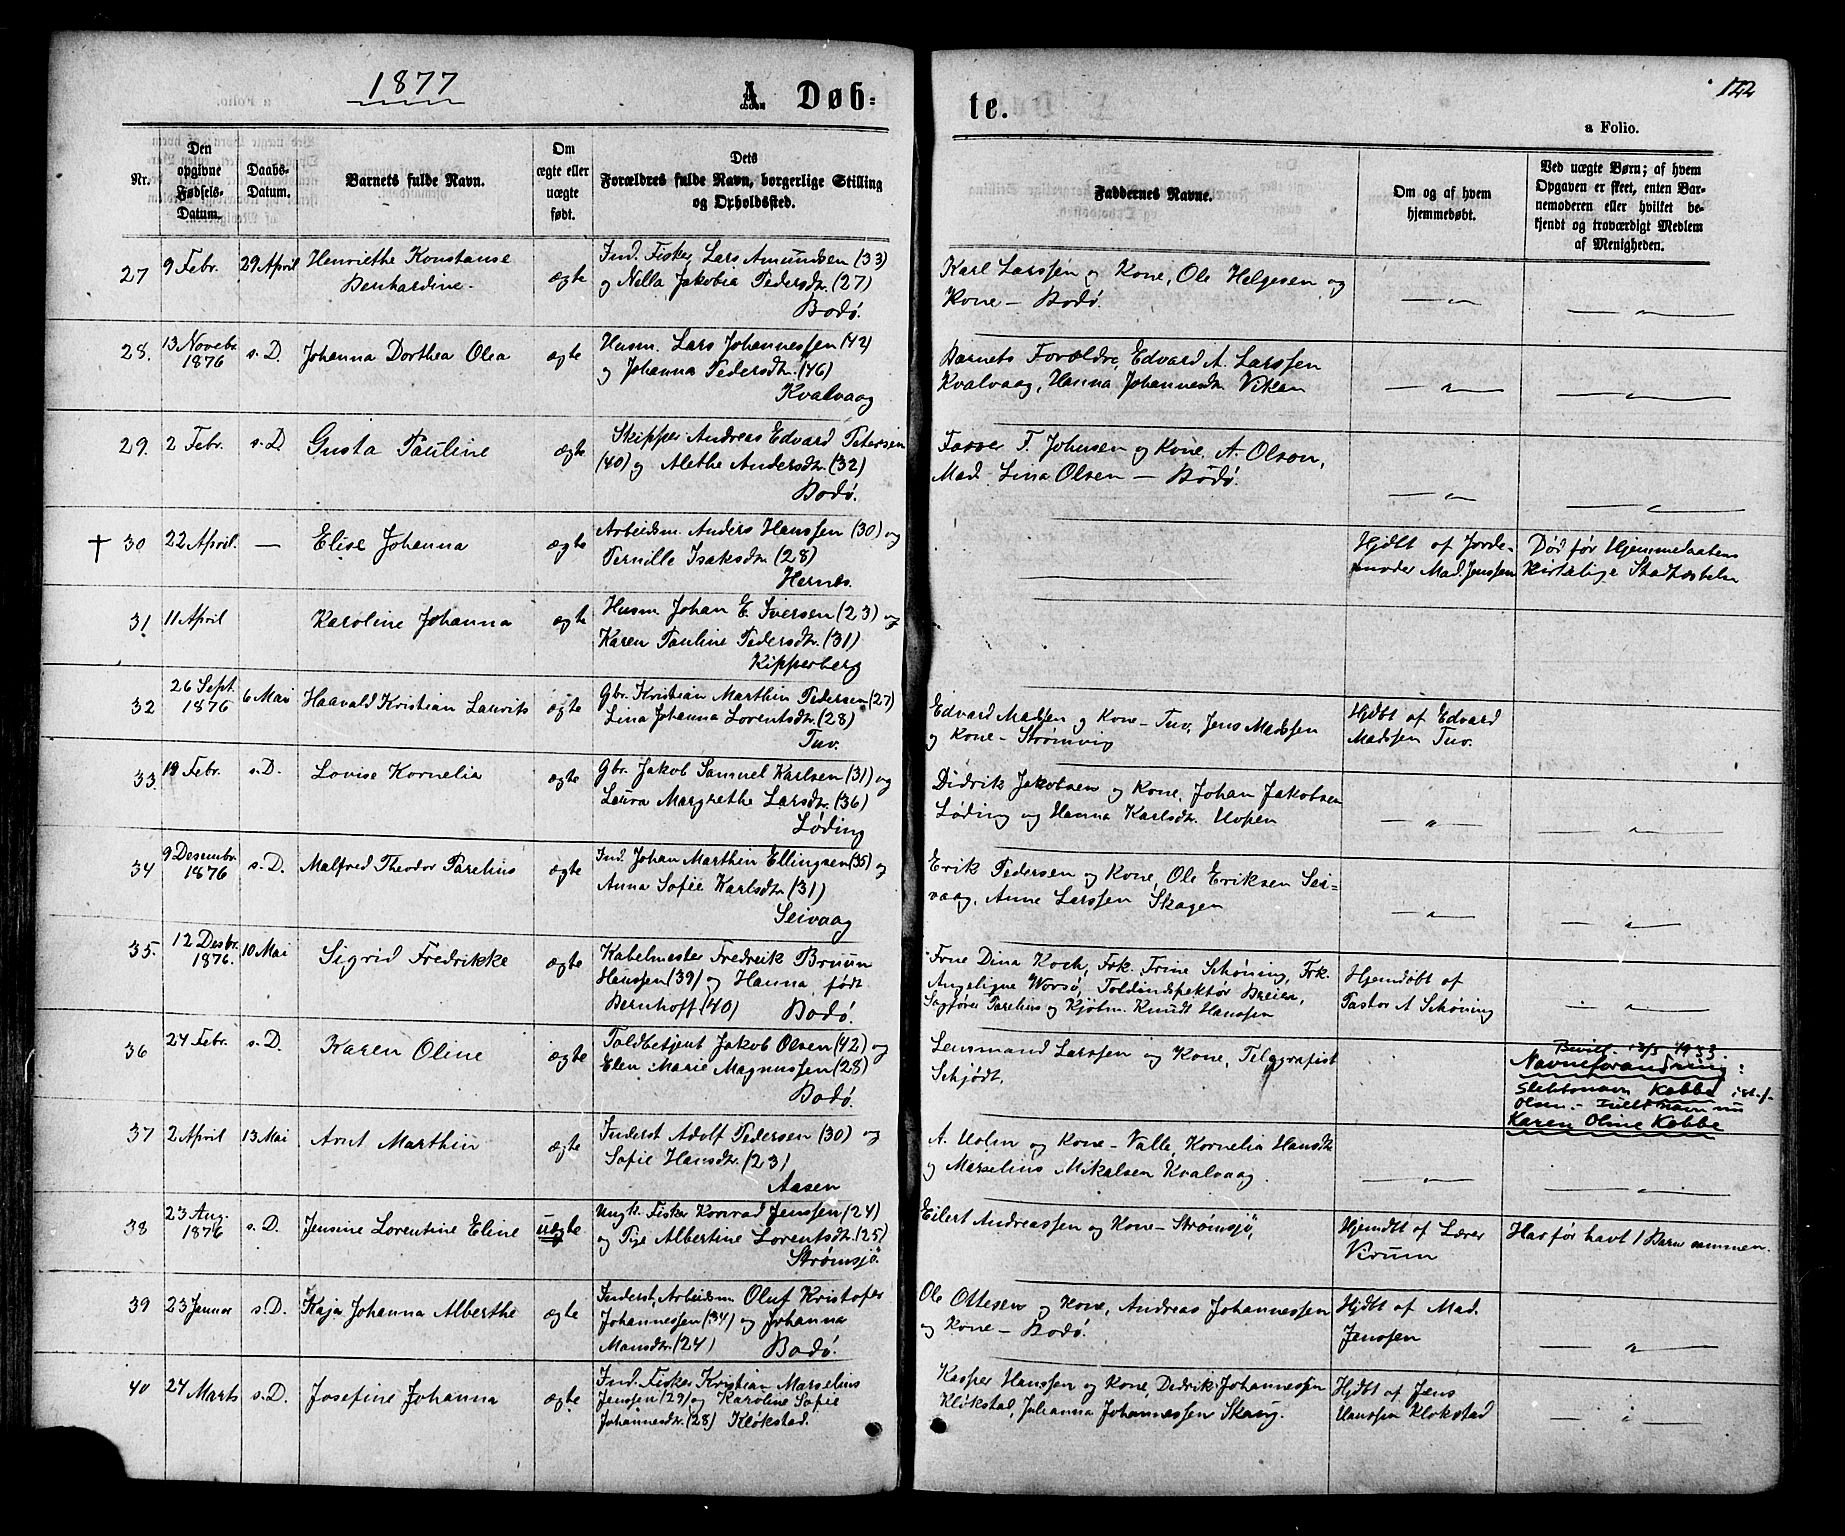 1877
A. Døb-
te.
122
a Folio.
Nr.
Den opgivne Fødsels-Datum.
Daabs-Datum.
Barnets fulde Navn.
Om ægte eller uægte født.
Dets Forældres fulde Navn, borgerlige Stilling og Opholdssted.
Faddernes Navne.
Om og af hvem hjemmedøbt.
Ved uægte Børn; af hvem Opgaven er skeet, enten Barnemoderen eller hvilket bekjendt og troværdigt Medlem af Menigheden.
27 9 Febr. 29 April Henriethe Konstanse ægte Ind. Fisker Lars Amundsen (33)
Bernhardine. og Nella Jakobia Pedersdtr. (27)
Bodø.
Karl Larssen og Kone, Ole Helgesen og
Kone – Bodø.
28. 13 Novebr. 1876 s. D. Johanna Dorthea Olea ægte Husm. Lars Johannessen (42)
og Johanna Pedersdtr. (46)
Kvalvaag
Barnets Forældre, Edvard A. Larssen
Kvalvaag, Hanna Johannesdtr. Viken
29. 2 Febr. s. D Gusta Pauline ægte Skipper Andreas Edvard Petersen
(40) og Alethe Andersdtr. (32)
Bodø.
P. Johnsen og Kone, A. Olson,
Mad. Lina Olsen – Bodø.
† 30 22 April. — Elise Johanna ægte Arbeidsm. Anders Hanssen (30) og
Pernille Isaksdtr. (28)
Hernes.
Hjdbt af Jorde-
moder Mad. Jenssen
Død før Hjemmedaabens
kirkelige Stadfæstelse
31 11 April Karoline Johanna ægte Husm Johan E. Iversen (23) og
Karen Pauline Pedersdtr. (31)
Kipperberg
32 26 Sept. 1876 6 Mai Haavald Kristian Laurits ægte Gbr. Kristian Marthin Pedersen (27)
Lina Johanna Lorentsdtr. (28)
Tuv.
Edvard Madsen og Kone – Tuv, Jens Madssen
og Kone – Strømvig
Hjdbt af Edvard
Madssen Tuv.
33. 19 Febr. s. D. Lovise Kornelia ægte Gbr. Jakob Samuel Karlsen (31) og
Laura Margrethe Larsdtr. (36)
Løding
Didrik Jakobsen og Kone, Johan Jakobsen
Løding og Hanna Karlsdtr. Hopen
34 9 Desembr. 1876 s. D. Malfred Theodor Parelius ægte Ind. Johan Marthin Ellingsen (35) og
Anna Sofie Karlsdtr. (31)
Seivaag
Erik Pedersen og Kone, Ole Eriksen Sei-
vaag, Anne Larssen Skagen
35. 12 Desbr. 1876. 10 Mai Sigrid Fredrikke ægte Kabelmester Fredreik Bruun
Hanssen (39) og Hanna, født
Bernhoff (40) Bodø.
Frue Dina Koch, Frk. Trine Schøning, Frk.
Angeligne Worsø, Toldindspektør Breien,
Sagfører Parelius og Kjøbm. Knudt Hanssen
Hjemdøbt af
Pastor A Schøning
36 24 Febr. s. D. Karen Oline ægte Toldbetjent Jakob Olsen (42) og
Elen Marie Magnussen (28)
Bodø.
Lensmand Larssen og Kone, Telegrafist
Schjødt.
Bevill. 13/5 1933.
Navneforandring:
Slektsnavn Kobbe ist. f.
Olsen. – Fullt navn nu
Karen Oline Kobbe
37 2 April 13 Mai Arnt Marthin ægte Inderst Adolf Pedersen (30) og
Sofie Hansdtr. (23)
Aasen
A. Holm og Kone – Valle, Kornelia Hansdtr.
og Marselius Mikalsen Kvalvaag.
38 23 Aug. 1876 s. D. Jensine Lorentine Eline uægte Ungk. Fisker Konrad Jenssen (24)
og Pige Albertine Lorentsdtr. (25)
Strømsjö.
Eilert Andreassen og Kone – Strømsjö,
Hjemdbt af Lærer
Bruun
Har før havt 1 Barn sammen.
39 23 Januar s. D. Kaja Johanna Alberthe ægte Inderst, Arbeidsm. Oluf Kristofer
Johannessen (34) og Johanna
Mansdtr. (24) Bodø.
Ole Ottesen og Kone, Andreas Johannessen
og Kone – Bodø.
Hjdbt af Mad.
Jenssen
40 24 Marts s. D. Josefine Johanna ægte Ind. Fisker Kristian Marselius
Jenssen (29) og Karoline Sofie
Johannesdtr. (28) Kløkstad.
Kasper Hanssen og Kone, Didrik Johannessen
Kløkstad, Julianna Johannessen Skaug.
Hjdbt af Jens
Hanssen Klokstad